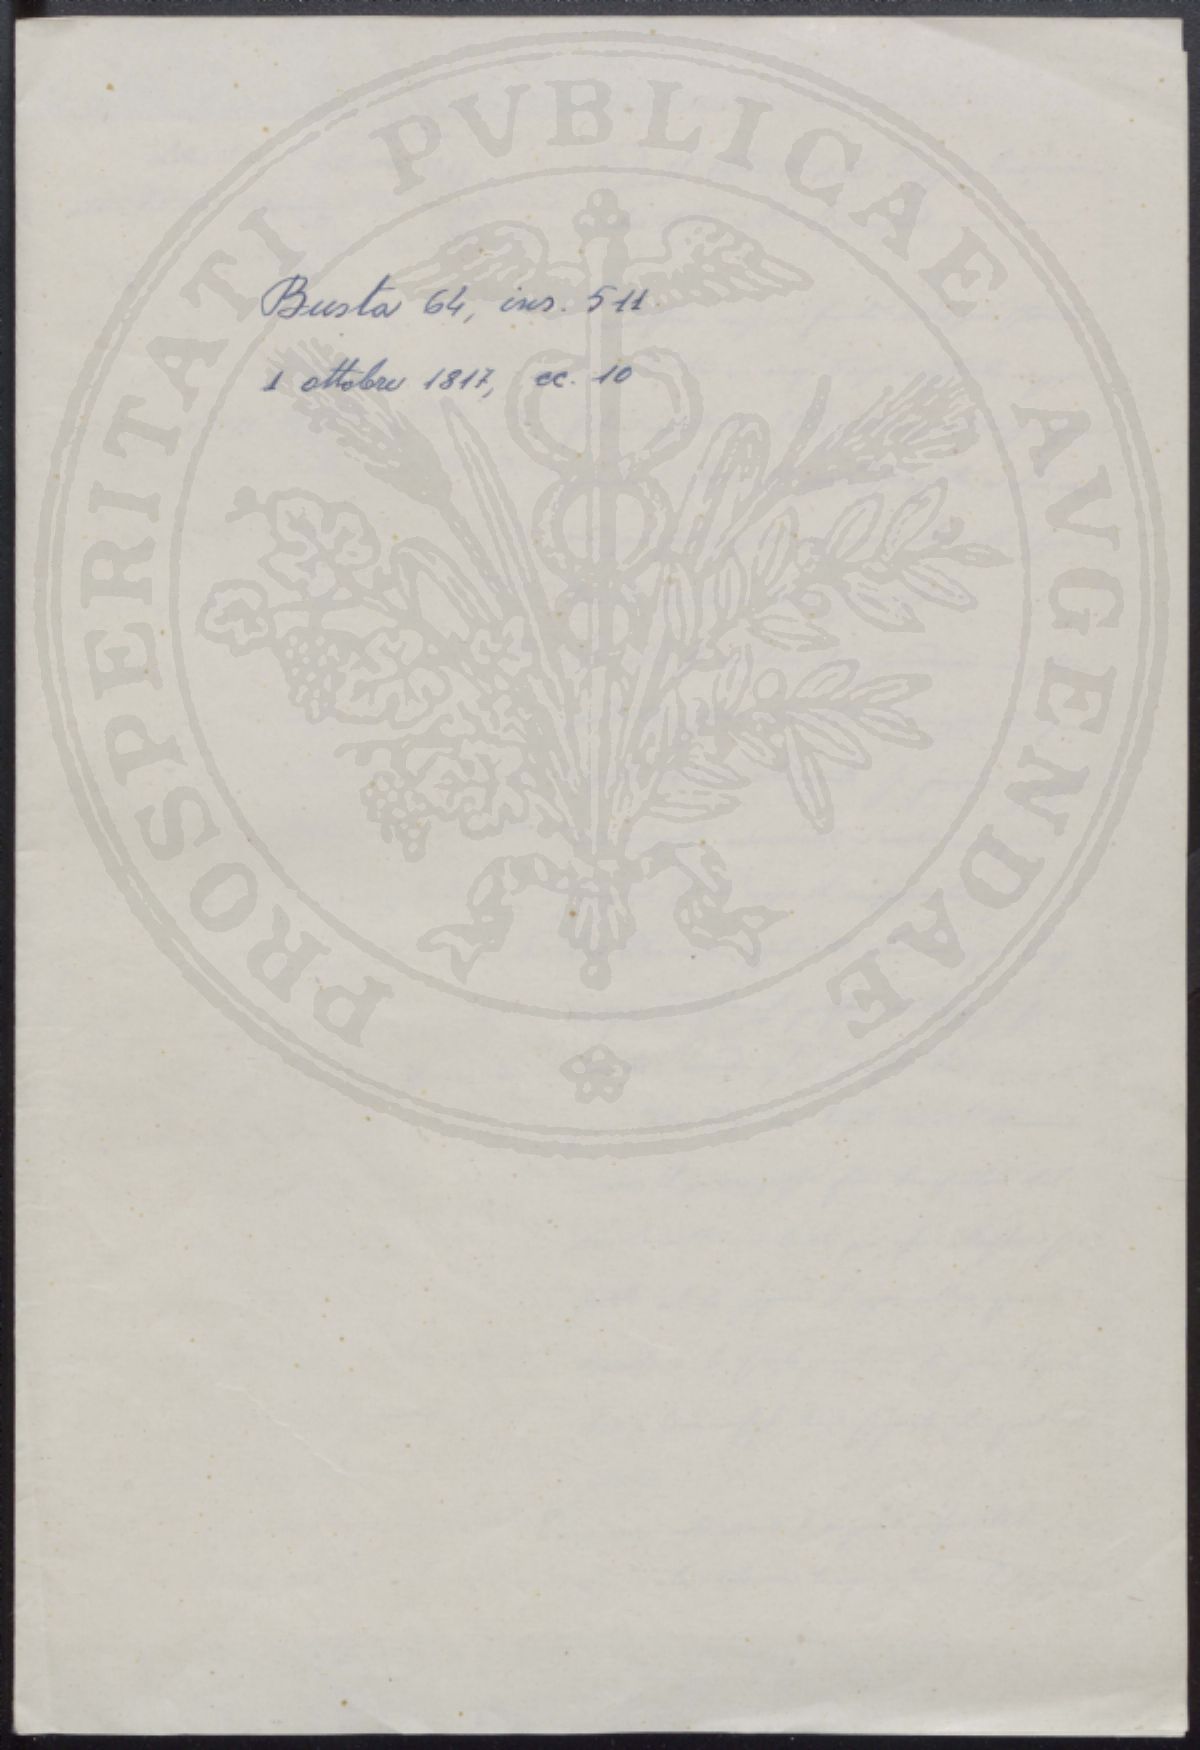 PROSPERITATI PVBLICAE AVGENDAE
Busta 64, ins. 511
1 ottobre 1817, cc. 10